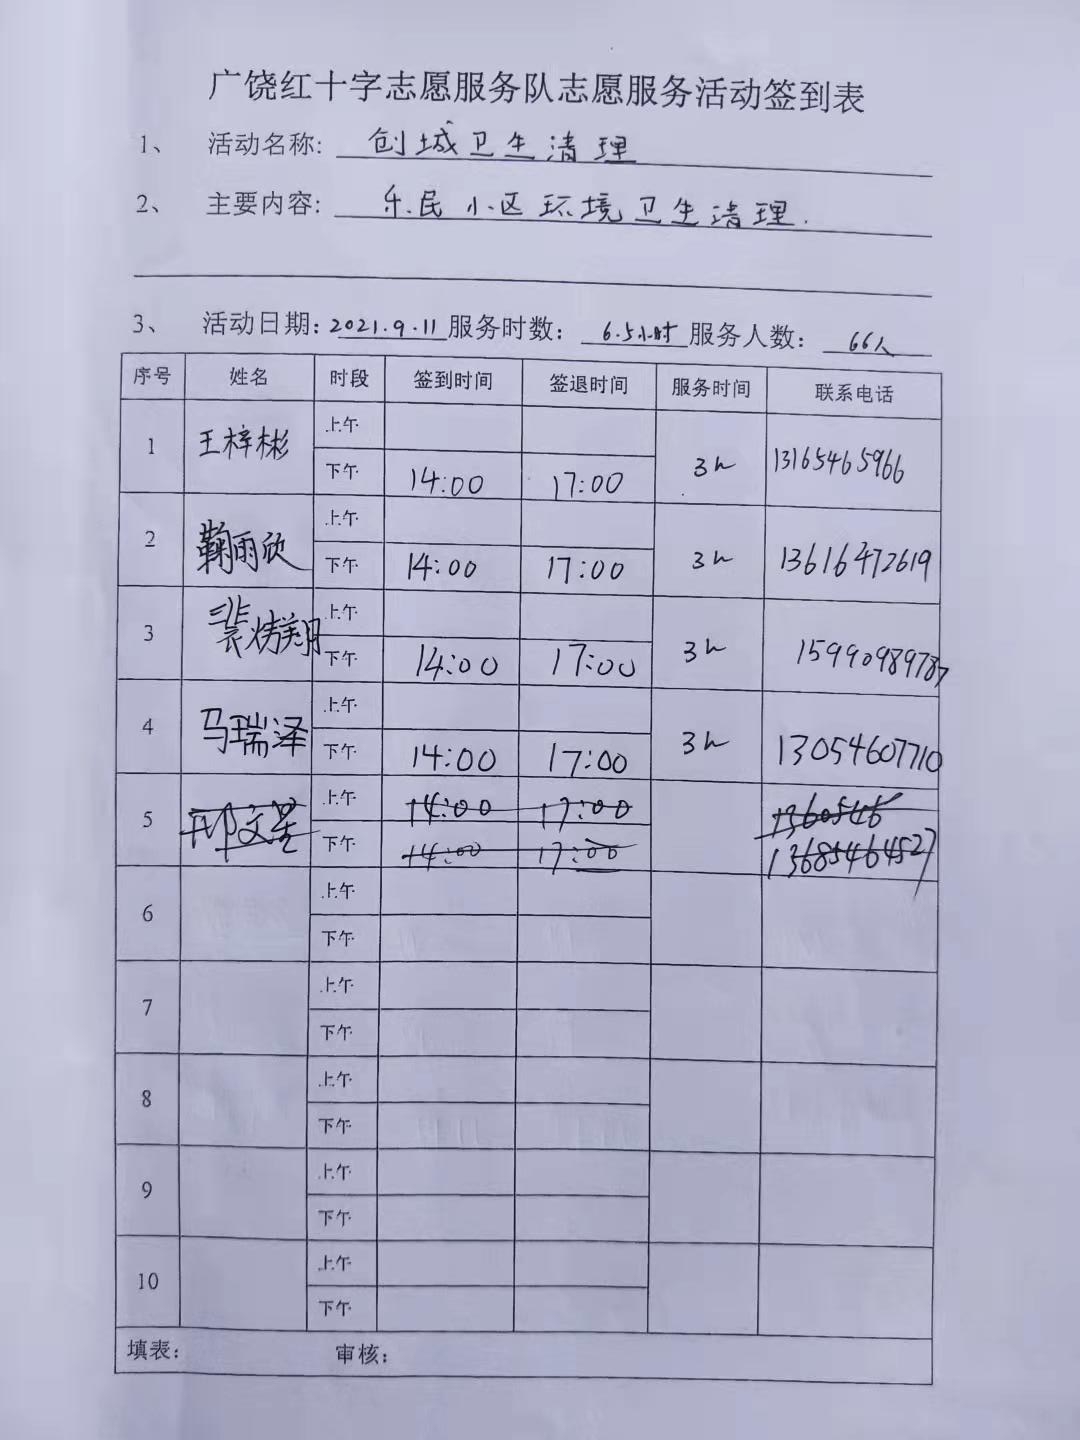 广饶红十字志愿服务队志愿服务活动签到表
1、 活动名称: 创城卫生清理
2、 主要内容: 乐民小区环境卫生清理.
3、 活动日期: 2021.9.11 服务时数: 6.5小时 服务人数: 66人
序号 姓名 时段 签到时间 签退时间 服务时间 联系电话
1 王梓彬 上午
下午 14:00 17:00 3h 13165465966
2 鞠雨欣 上午
下午 14:00 17:00 3h 13616472619
3 裴炜翔 上午
下午 14:00 17:00 3h 15990989787
4 马瑞泽 上午
下午 14:00 17:00 3h 13054607710
5 邢文星 上午 14:00 17:00 1360546
下午 14:00 17:00 13685464527
6 上午
下午
7 上午
下午
8 上午
下午
9 上午
下午
10 上午
下午
填表: 审核: